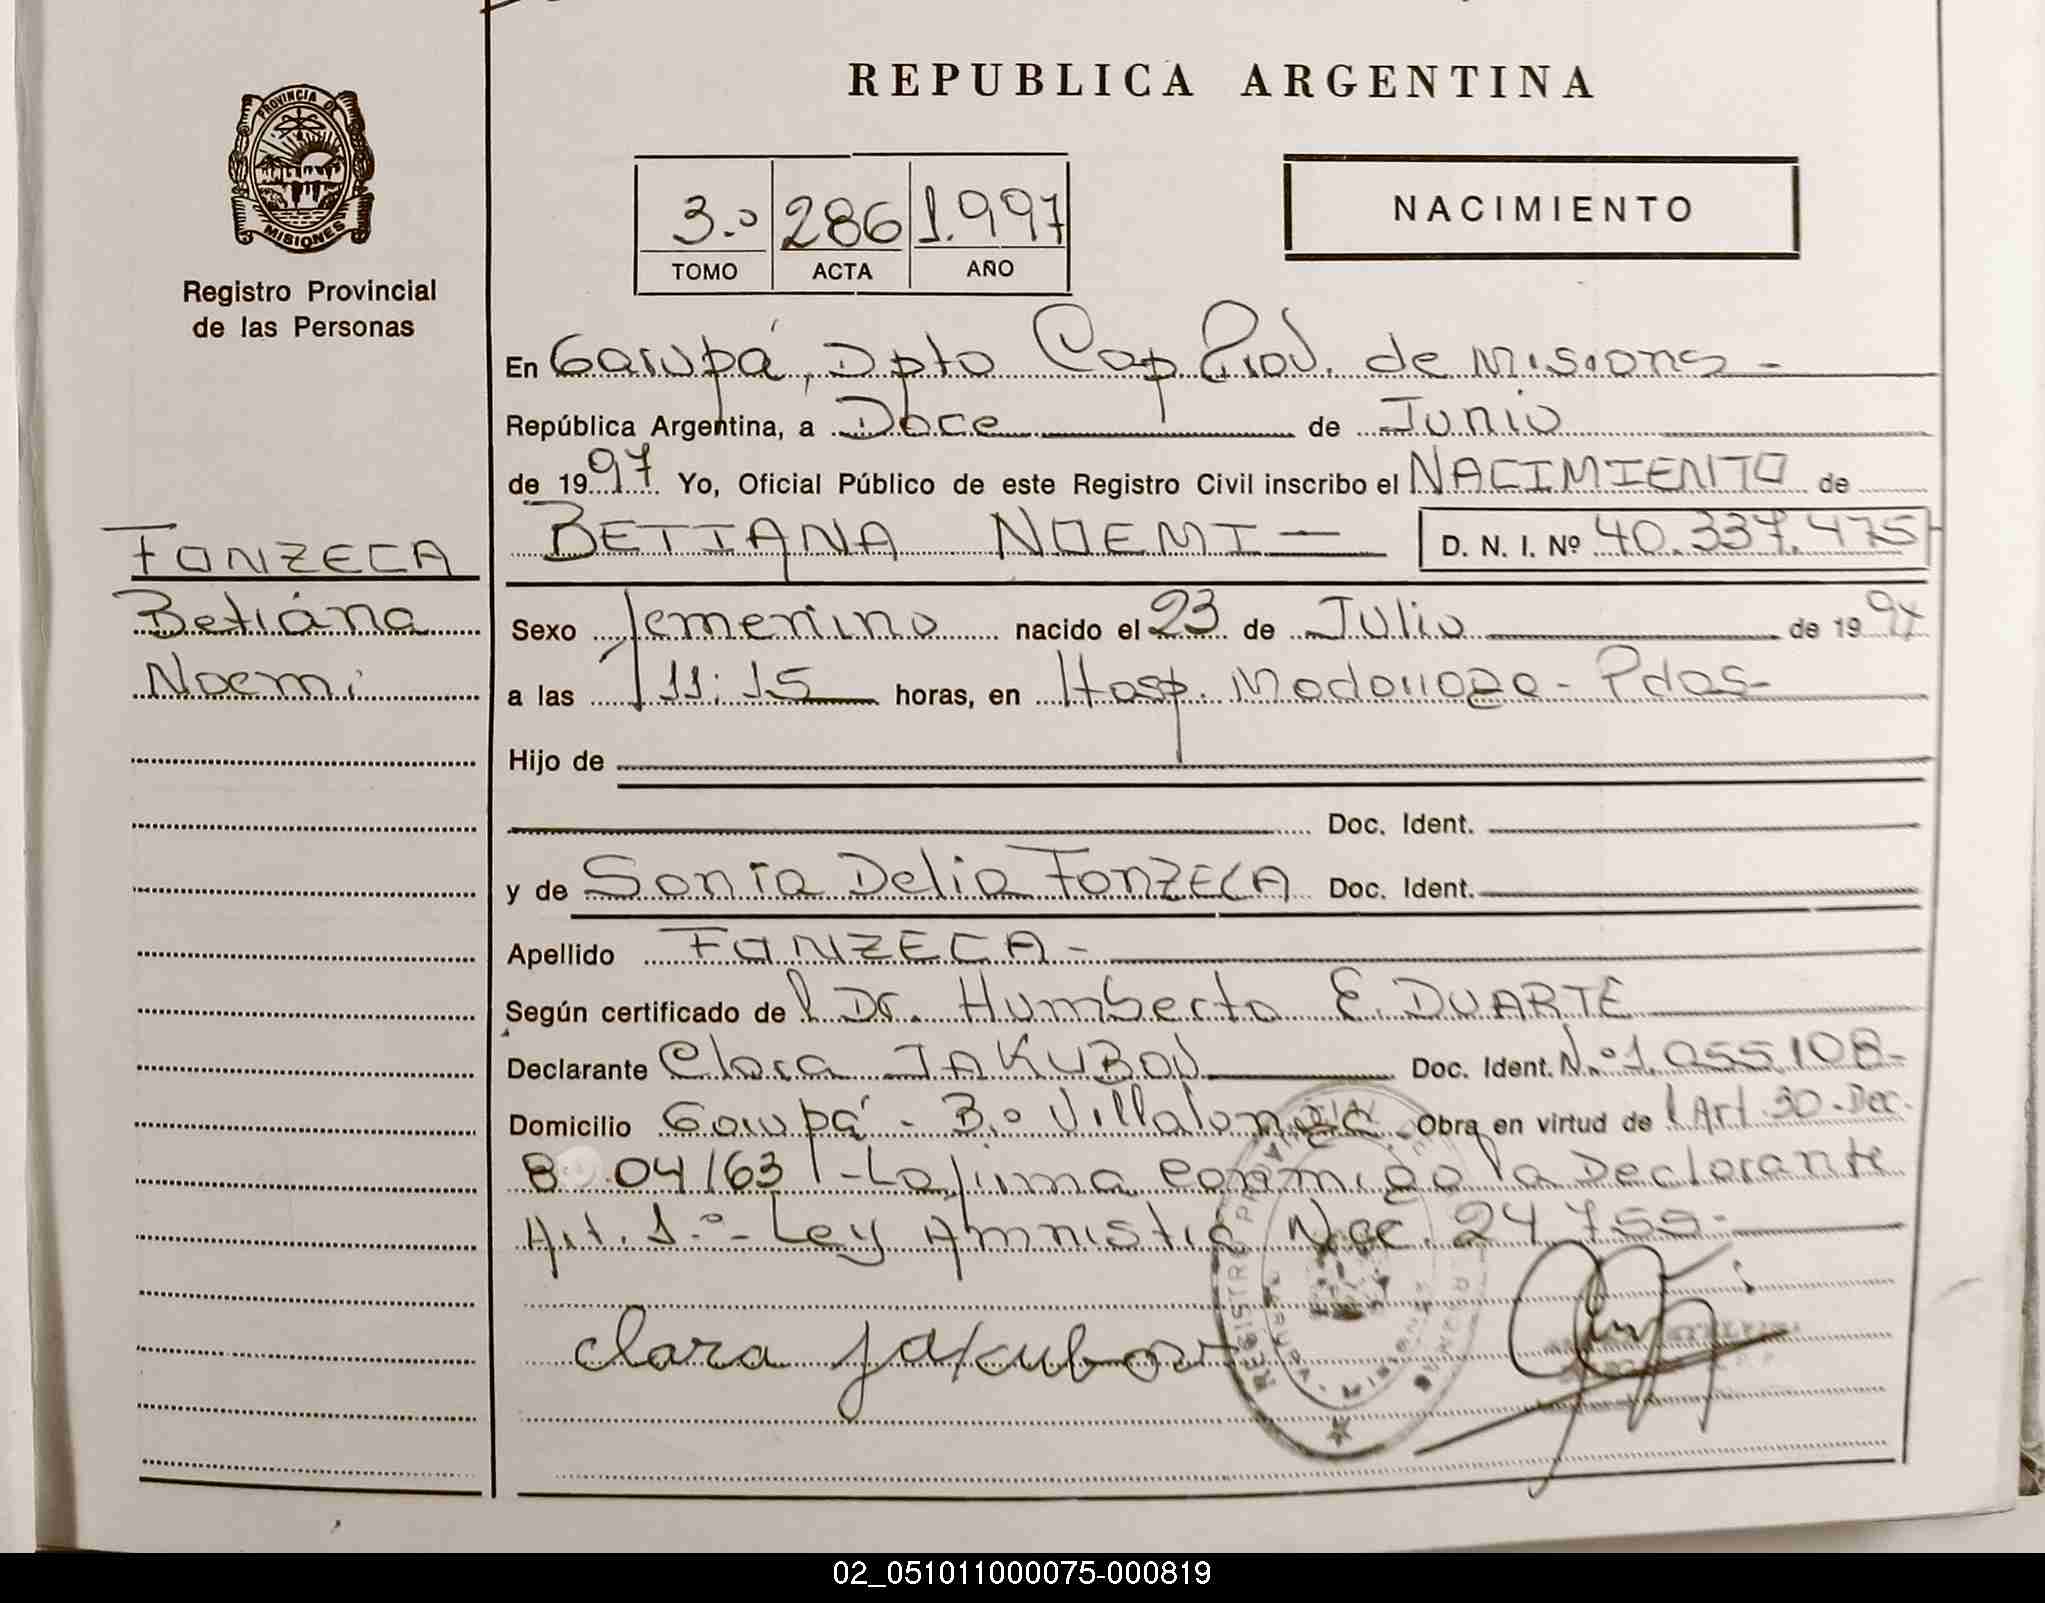 REPUBLICA ARGENTINA
PROVINCIA DE
MISIONES
Registro Provincial
de las Personas
3.º 286 1.997
TOMO ACTA AÑO
NACIMIENTO
En Garupá, Dpto Cap Prov. de Misions -
República Argentina, a Doce de Junio
de 1997 Yo, Oficial Público de este Registro Civil inscribo el NACIMIENTO de
FONZECA
BETIANA NOEMI — D. N. I. Nº 40.337.475
Betiana
Sexo femenino nacido el 23 de Julio de 19
Noemi
a las 11:15 horas, en Hosp. Madariaga - Pdas -
Hijo de
Doc. Ident.
y de Sonia Delia FONZECA Doc. Ident.
Apellido FONZECA -
Según certificado de l Dr. Humberto E. DUARTE
Declarante Clara JAKUBOV Doc. Ident. N.º 1.055.108 -
Domicilio Garupá - B.º Villalonga Obra en virtud de l Art. 30 - Dec.
8 04/63 - La firma conmigo la Declarante
Art. 1.º - Ley Amnistia Nac. 24.755 -
clara jakubov
REGISTRO PROVINCIAL
02_051011000075-000819